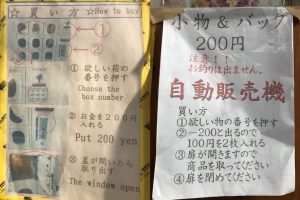 ☆買い方☆How to buy
①
②
③
①欲しい箱の
番号を押す
Choose the
box number
②お金を200円
入れる
Put 200 yen
③蓋が開いたら
取り出す
The window open
小物&バッグ
200円
注意!!
お釣りは出ません。
自動販売機
買い方
①欲しい物の番号を押す
②－200と出るので
100円を2枚入れる
③扉が開きますので
商品を取ってください
④扉を閉めてください